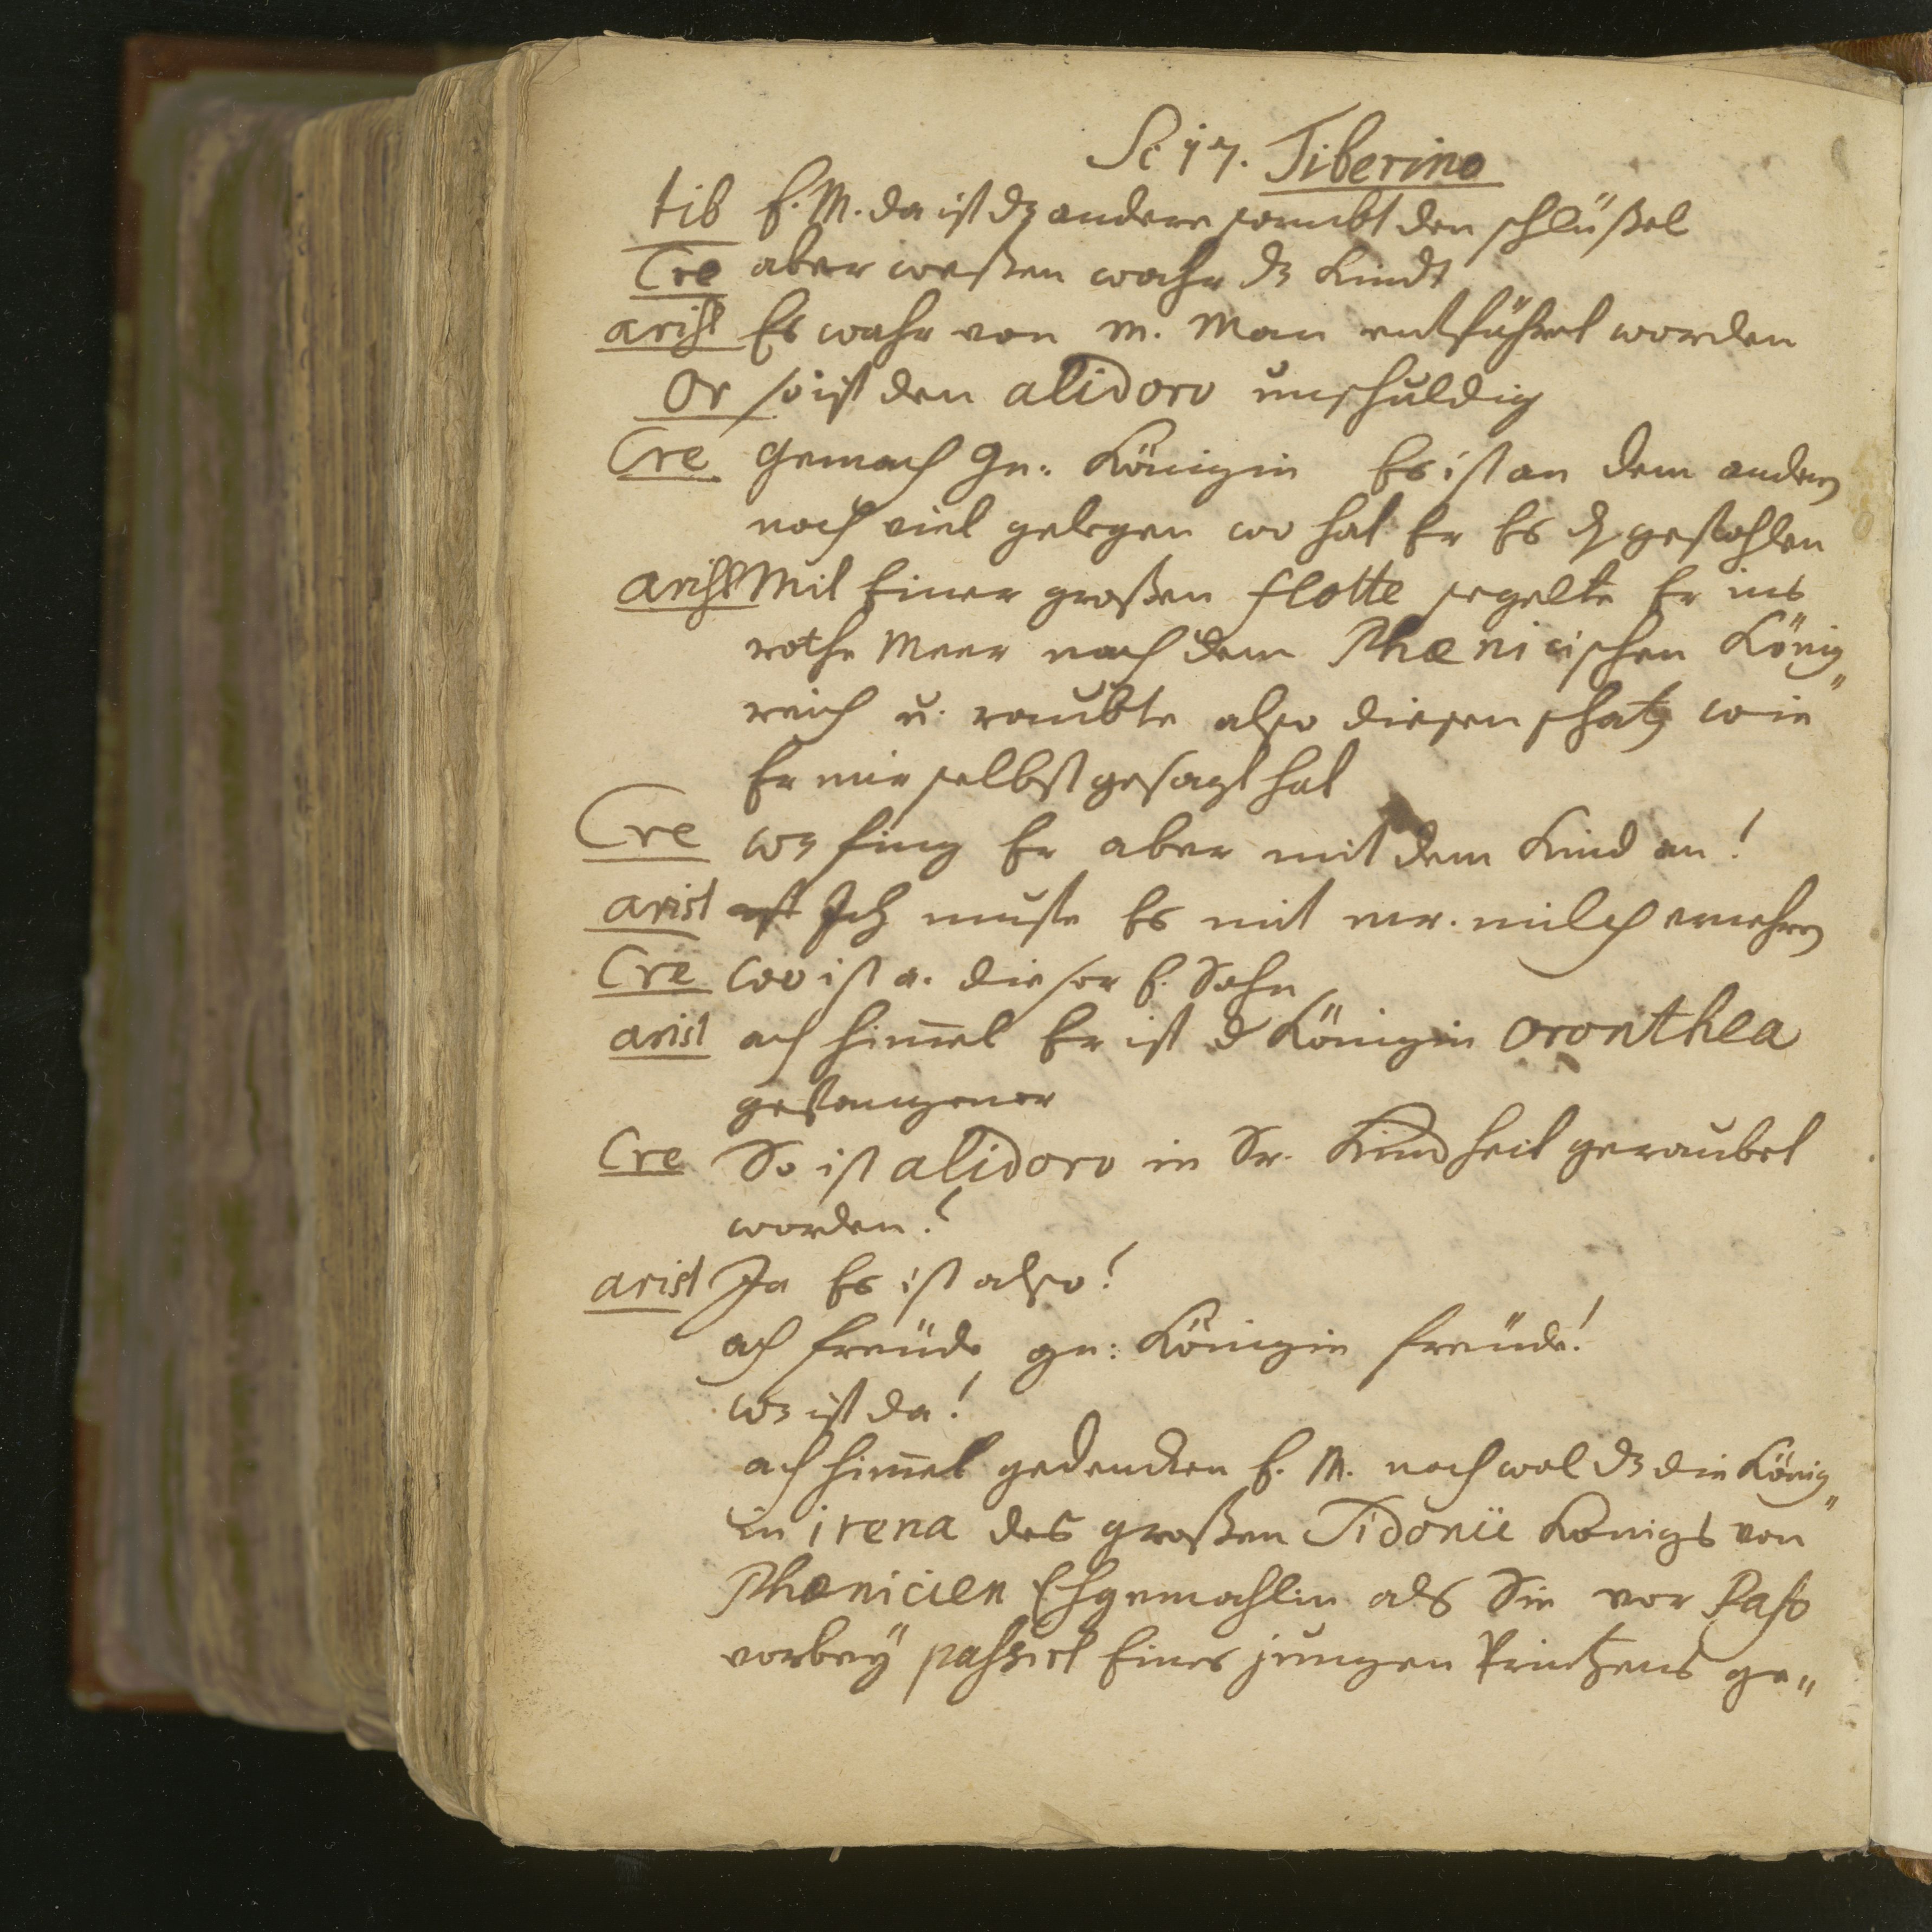 Sc 17. Tiberino
tib E. M. da ist dz andere sambt den schlüßel
Cre aber weßen wahr dz Kindt
arist Es wahr von m. Man entführet worden
Or so ist den alidoro unschuldig
Cre Gemach Gn: Königin Es ist an dem andern
noch viel gelegen wo hat Er Es gestohlen
arist Mit Einer großen flotte segelte Er ins
rothe Meer nach dem Phœnicischen König„
reich u. raubte also diesen schatz wie
Er mir selbst gesagt hat
Cre wz fing Er aber mit dem Kind an!
arist Ich muste Es mit mr. milch ernehren
Cre wo ist a. dieser E. Sohn
arist ach himmel Er ist d Königin oronthea
gefangener
Cre So ist alidoro in Sr. Kindheit geraubet
worden?
arist Ja Es ist also!
ach freüde gn: Königin freüde!
wz ist da!
ach himmel gedencken E. M. noch wol dz die König„
in irena des großen Sidonii Königs von
Phœnicien Ehgemahlin als Sie vor Pafo
vorbey passirt Eines jungen Printzens ge„